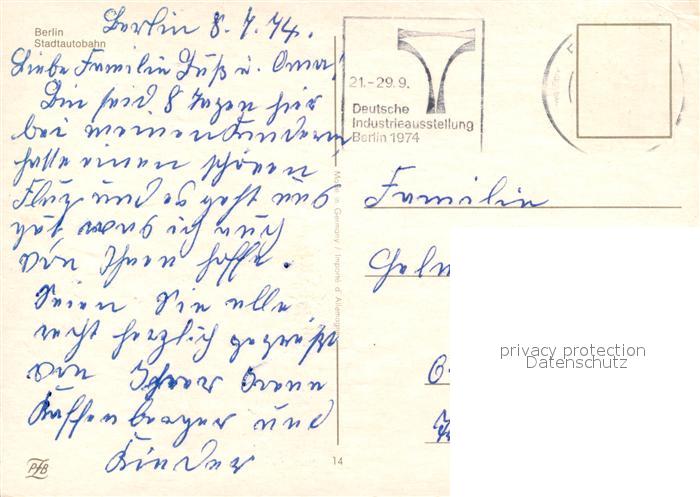 Berlin
Stadtautobahn
Berlin 8.7.74.
Liebe Familie Duß u. Oma!
Bin seid 8 Tagen hier
bei meinen Kindern
hatte einen schönen
Flug und es geht uns
gut was ich auch
von Ihnen hoffe.
Seien Sie alle
recht herzlich gegrüßt
von Ihrer Anna
Kaffenberger und
Kinder
PFB
14
Made in Germany / Importé d'Allemagne
21.-29.9.
Deutsche
Industrieausstellung
Berlin 1974
Familie
privacy protection
Datenschutz